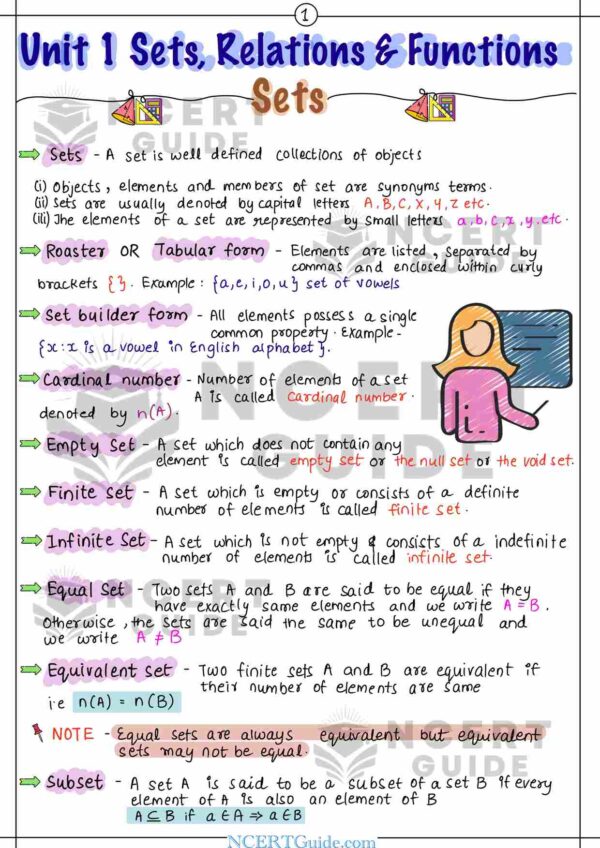 1
Unit 1 Sets, Relations & Functions
Sets
NCERT
GUIDE
Sets - A set is well defined collections of objects
(i) Objects, elements and members of set are synonyms terms.
(ii) Sets are usually denoted by capital letters A, B, C, X, Y, Z etc.
(iii) The elements of a set are represented by small letters a, b, c, x, y, etc.
NCERT
GUIDE
Roaster OR Tabular form - Elements are listed, separated by
commas and enclosed within curly
brackets { }. Example: {a, e, i, o, u} set of vowels
Set builder form - All elements possess a single
common property. Example-
{x : x is a vowel in English alphabet}.
Cardinal number - Number of elements of a set
A is called Cardinal number.
denoted by n(A).
NCERT
GUIDE
Empty Set - A set which does not contain any
element is called empty set or the null set or the void set.
Finite set - A set which is empty or consists of a definite
number of elements is called finite set.
Infinite Set - A set which is not empty & consists of a indefinite
number of elements is called infinite set.
Equal Set - Two sets A and B are said to be equal if they
have exactly same elements and we write A = B.
Otherwise, the sets are said the same to be unequal and
we write A ≠ B
NCERT
GUIDE
Equivalent set - Two finite sets A and B are equivalent if
their number of elements are same
i.e n(A) = n(B)
NOTE - Equal sets are always equivalent but equivalent
sets may not be equal.
NCERT
GUIDE
Subset - A set A is said to be a subset of a set B if every
element of A is also an element of B
A ⊆ B if a ∈ A ⇒ a ∈ B
NCERTGuide.com